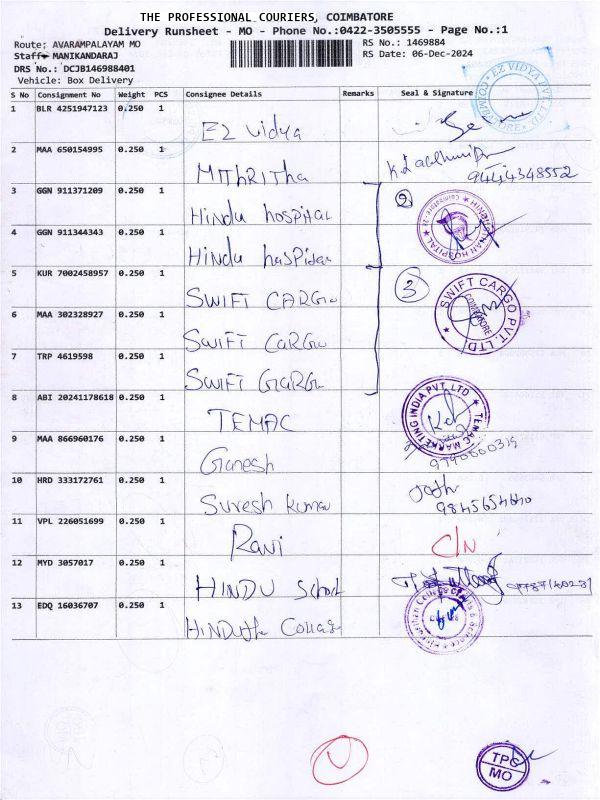 THE PROFESSIONAL COURIERS, COIMBATORE
Delivery Runsheet - MO - Phone No.:0422-3505555 - Page No.:1
Route: AVARAMPALAYAM MO RS No.: 1469884
Staff- MANIKANDARAJ RS Date: 06-Dec-2024
DRS No.: DCJB146988401
Vehicle: Box Delivery
S No Consignment No Weight PCS Consignee Details Remarks Seal & Signature
1 BLR 4251947123 0.250 1 EZ Vidya
EZ VIDYA PVT LTD COIMBATORE
2 MAA 650154995 0.250 1 MITHRITHA
9444348552
3 GGN 911371209 0.250 1 Hindu hospital 2
4 GGN 911344343 0.250 1 Hindu hospital
HOSPITAL
5 KUR 7002458957 0.250 1 SWIFT CARGO 3
SWIFT CARGO PVT. LTD. COIMBATORE
6 MAA 302328927 0.250 1 SWIFT CARGO
7 TRP 4619598 0.250 1 SWIFT CARGO
8 ABI 20241178618 0.250 1 TEMAC
TEMAC MARKETING INDIA PVT. LTD
9 MAA 866960176 0.250 1 Ganesh
10 HRD 333172761 0.250 1 Suresh Kumar
11 VPL 226051699 0.250 1 Rani C/N
12 MYD 3057017 0.250 1 HINDU School
13 EDQ 16036707 0.250 1
TPC
MO